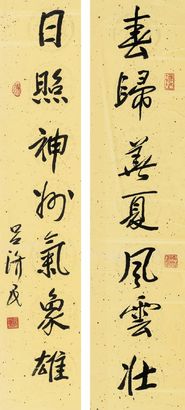 春歸華夏風雲壯
日照神州氣象雄
呂濟民